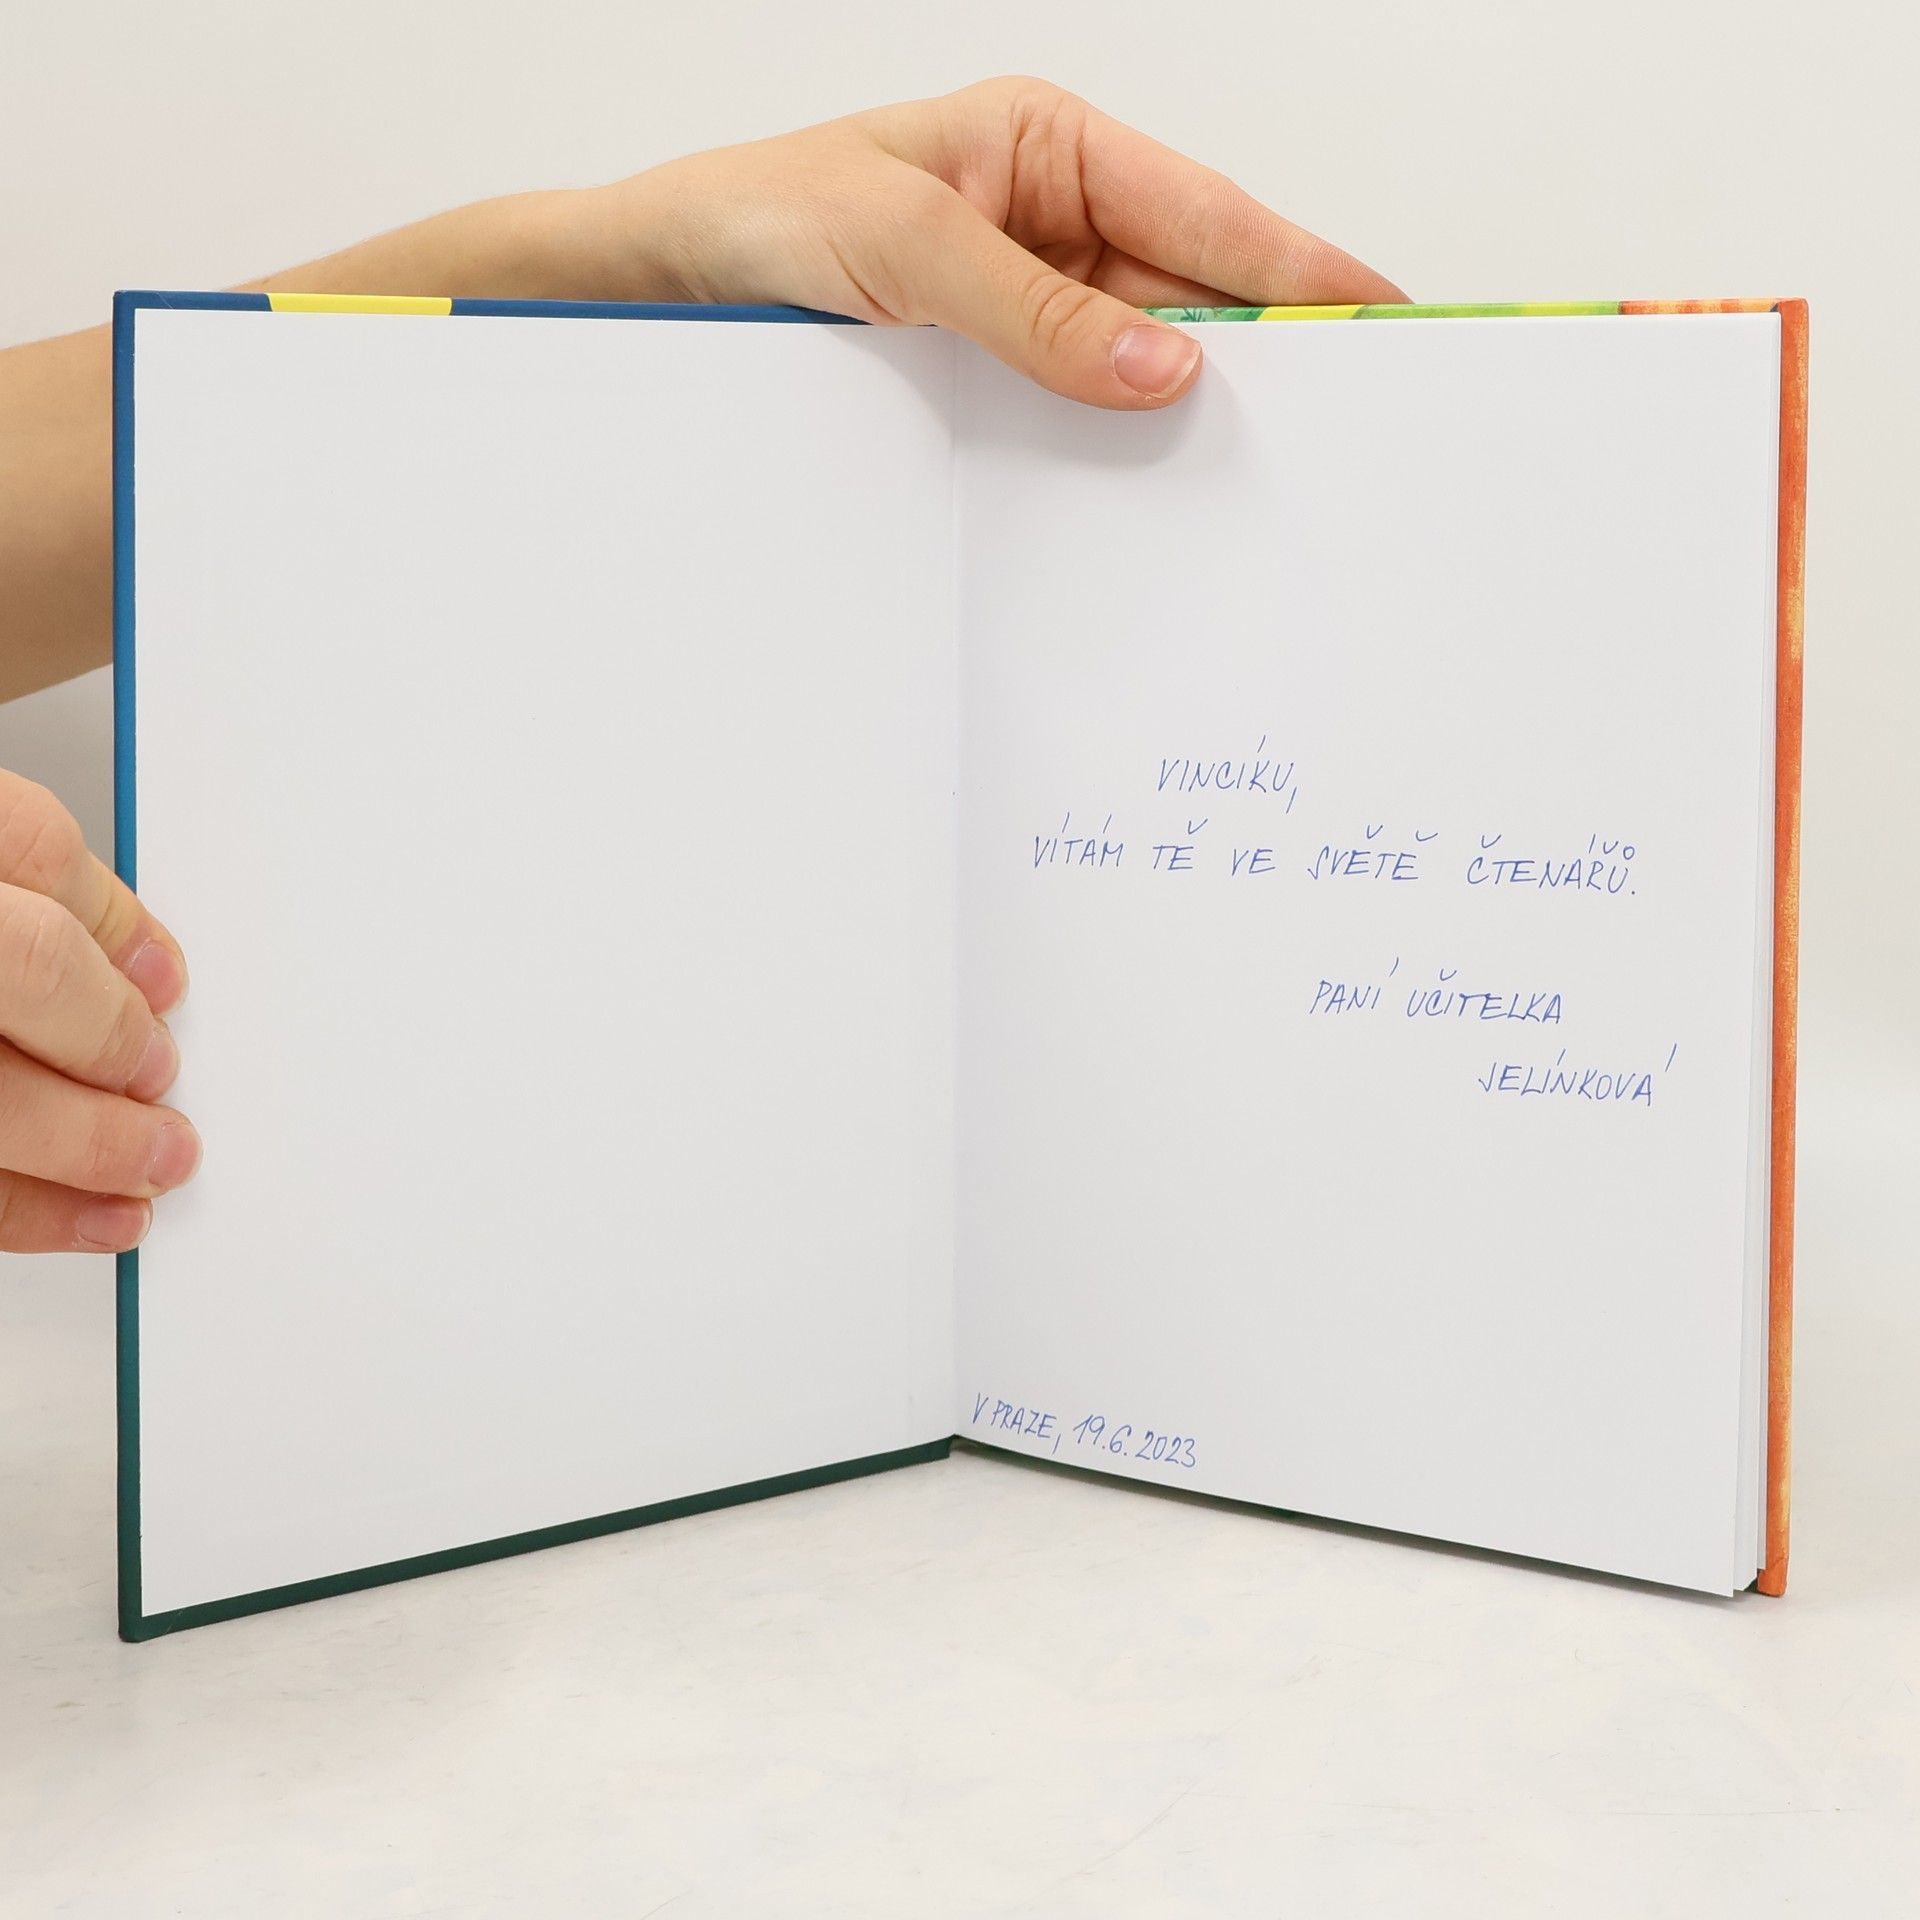 VINCÍKU,
VÍTÁM TĚ VE SVĚTĚ ČTENÁŘŮ.
PANÍ UČITELKA
JELÍNKOVÁ
V PRAZE, 19.6.2023